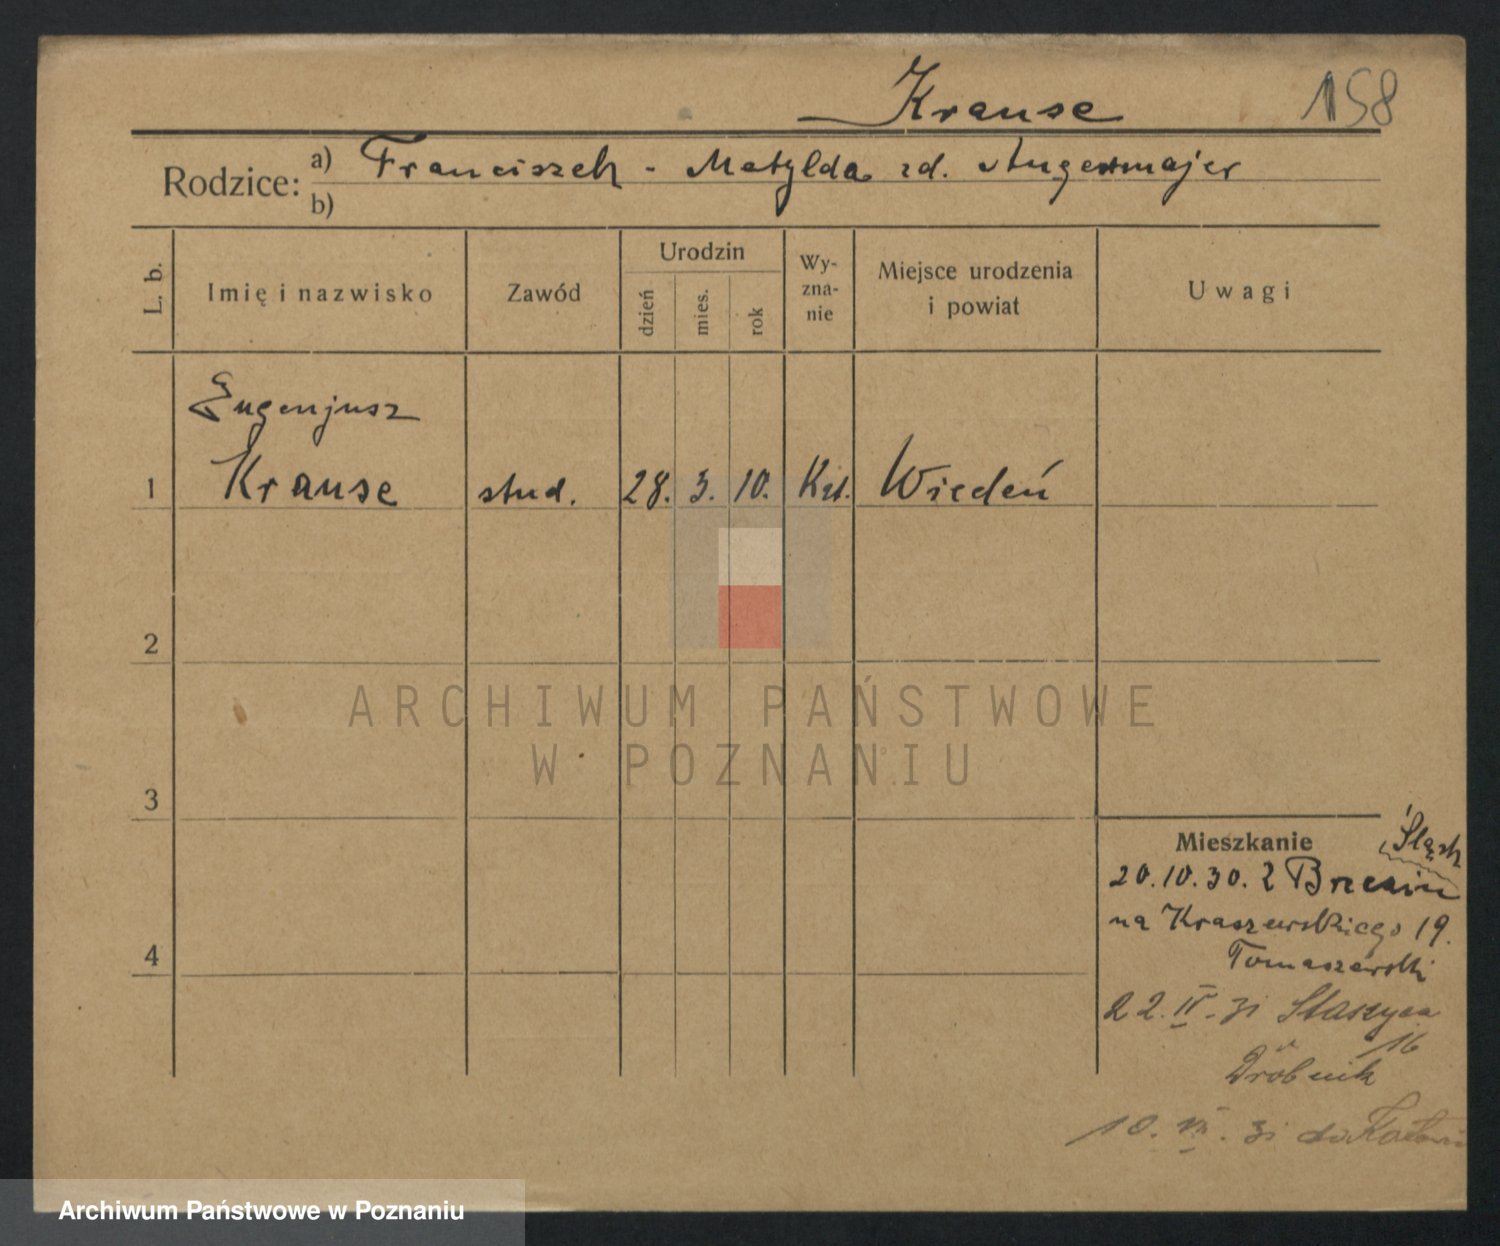 Krause 158
Rodzice: a) Franciszek - Matylda zd. Angermajer
b)
L. b. Imię i nazwisko Zawód Urodzin dzień mies. rok Wy-zna-nie Miejsce urodzenia i powiat Uwagi
Eugenjusz
1 Krause stud. 28. 3. 10. Kat. Wiedeń
2
3
4
Mieszkanie Śląsk
20.10.30. z Brzezin
na Kraszewskiego 19.
Tomaszewski
22. IV. 31 Staszyca
16
Drobnik
10. VII. 31 do
ARCHIWUM PAŃSTWOWE
W POZNANIU
Archiwum Państwowe w Poznaniu